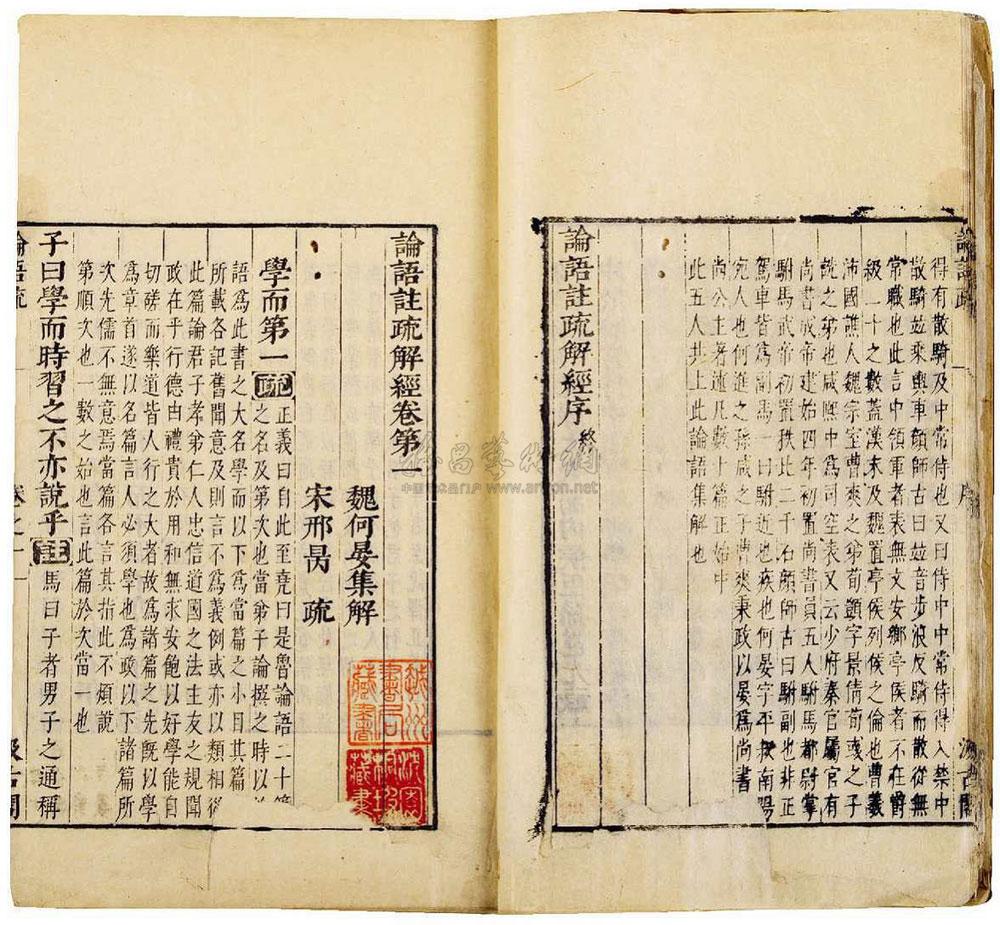 論語疏
序
汲古閣
得有散騎及中常侍也又曰侍中中常侍得入禁中
散騎竝乘輿車顏師古曰竝音步浪反騎而散從無
常職也此言中領軍者表無文安鄉亭侯者不在爵
級二十之數蓋漢末及魏置亭侯列侯之倫也曹羲
沛國譙人魏宗室曹爽之弟荀顗字景倩荀彧之子
詵之弟也咸熙中爲司空表又云少府秦官屬官有
尚書成帝建始四年初置尚書員五人駙馬都尉掌
駙馬武帝初置秩比二千石顏師古曰駙副也非正
駕車皆爲副馬一曰駙近也疾也何晏字平叔南陽
宛人也何進之孫咸之子曹爽秉政以晏爲尚書
尚公主著述凡數十篇正始中
此五人共上此論語集解也
論語註疏解經序 終
論語註疏解經卷第一
魏何晏集解
宋邢昺 疏
越州
書石
藏書
藏書
學而第一 疏 正義曰自此至堯曰是魯論語二十篇
之名及第次也當弟子論撰之時以
語爲此書之大名學而以下爲當篇之小目其篇
所載各記舊聞意及則言不爲義例或亦以類相從
此篇論君子孝弟仁人忠信道國之法主友之規聞
政在乎行德由禮貴於用和無求安飽以好學能自
切磋而樂道皆人行之大者故爲諸篇之先既以學
爲章首遂以名篇言人必須學也爲政以下諸篇所
次先儒不無意焉當篇各言其指此不煩說
第順次也一數之始也言此篇於次當一也
子曰學而時習之不亦說乎 註 馬曰子者男子之通稱
論語疏
卷之一
汲古閣
www.artron.net